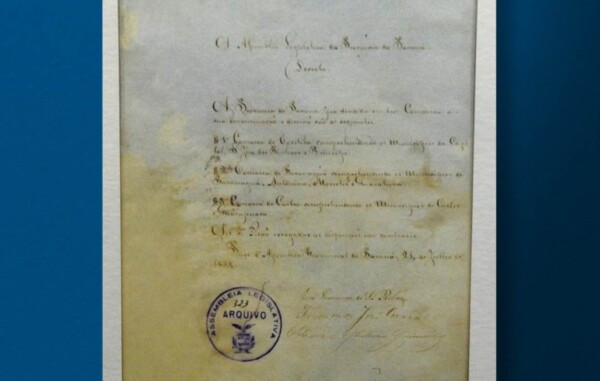 A Assembléa Legislativa da Provincia do Paraná
Decreta:
A Provincia do Paraná fica dividida em tres Comarcas e
sua denominação e divisão são as seguintes
§ 1ª Comarca de Coritiba comprehendendo os Municipios da Capi-
tal, S. Jose dos Pinhaes e Principe.
§ 2ª Comarca de Paranaguá comprehendendo os Municipios de
Paranaguá, Antonina, Morretes e Guaratuba
§ 3ª Comarca de Castro comprehendendo os Municipios de Castro
e Guarapuava
Art. 2º Ficão revogadas as disposições em contrario.
Paço d'Assembléa Provincial do Paraná, 21 de Julho de
ASSEMBLEIA LEGISLATIVA
323
ARQUIVO
José